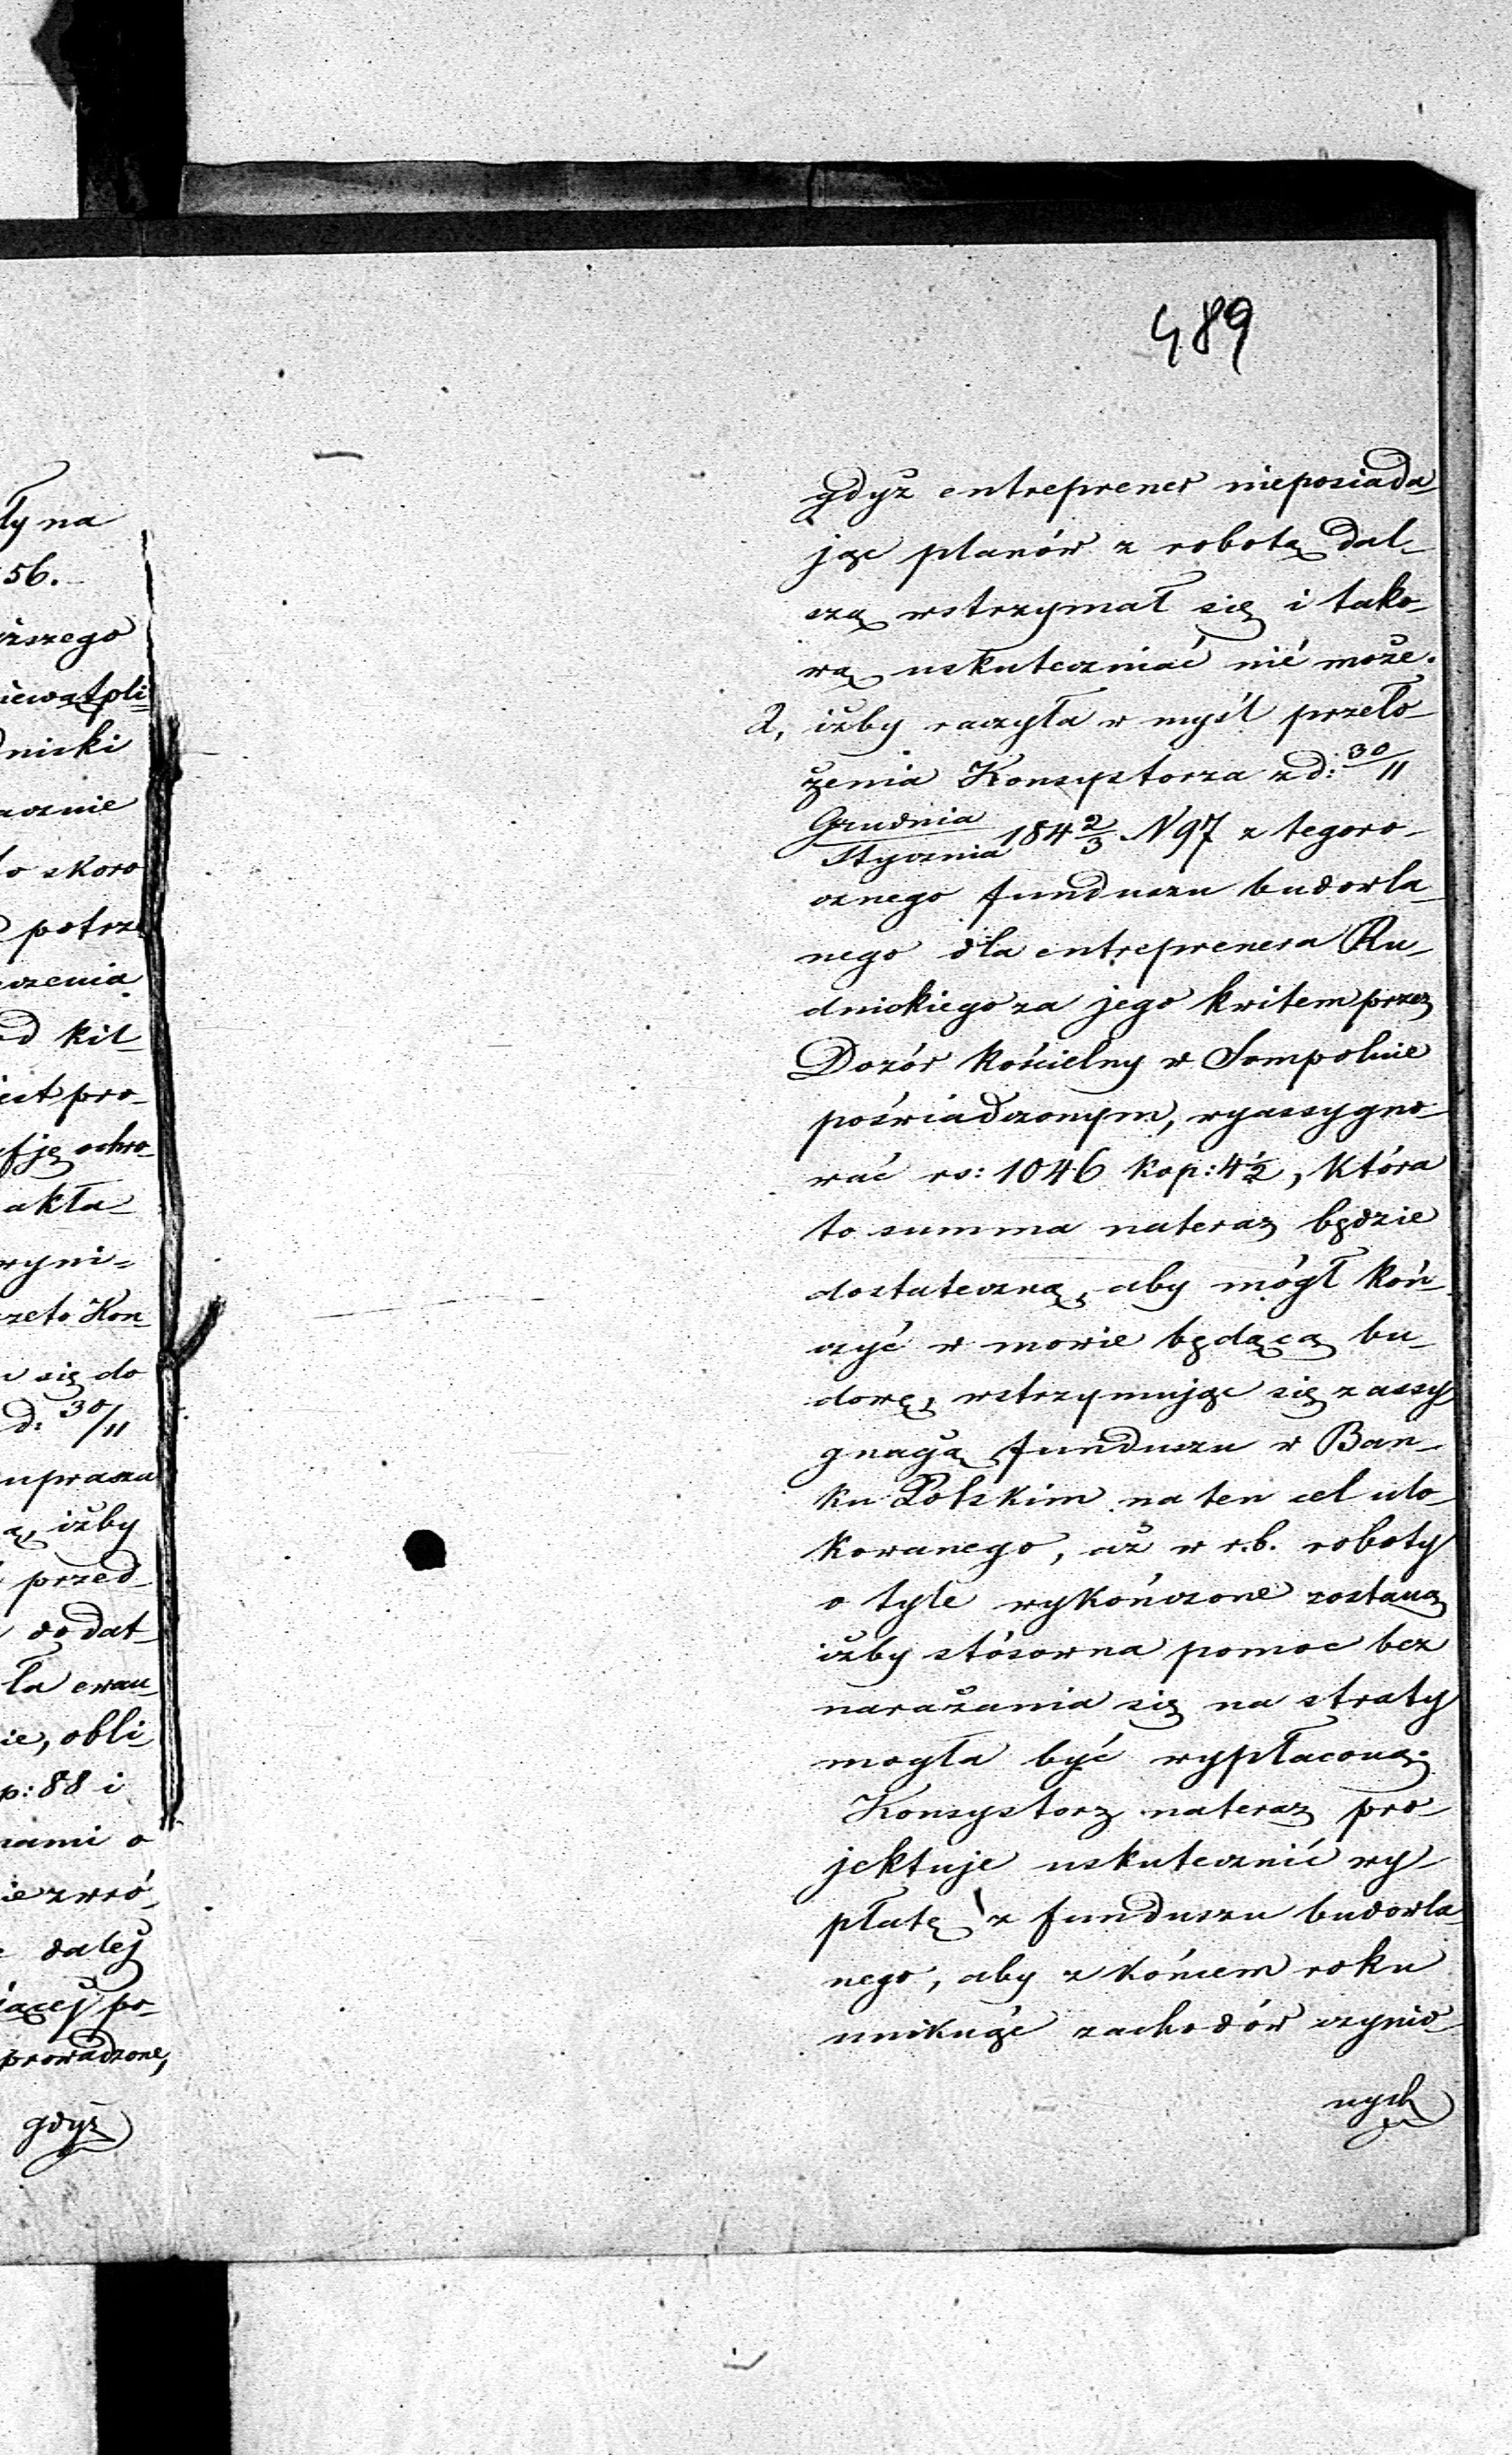 489
gdyż entreprener nieposiada-
jąc planów z robotą dal-
szą wstrzymał się i tako-
wą uskuteczniać nié może.
2, iżby raczyła w myśl przeło-
żenia Konsystorza z d: 30/11
Grudnia/Stycznia 184 2/3 N 97 z tegoro-
cznego funduszu budowla-
nego dla entreprenera Ru-
dnickiego za jego kwitem przez
Dozór kościelny w Sompolnie
poświadczonym, wyassygno-
wać rs: 1046 kop: 4½, która
to summa nateraz będzie
dostateczną, aby mógł koń-
czyć w mowie będącą bu-
dowę, wstrzymując się z assy-
gnacją funduszu w Ban-
ku Polskim na ten cel ulo-
kowanego, aż w r.b. roboty
o tyle wykończone zostaną
iżby stósowna pomoc bez
narażania się na straty
mogła być wypłaconą.
Konsystorz nateraz pro-
jektuje uskutecznić wy-
płatę z funduszu budowla-
nego, aby z końcem roku
uniknąć zachodów czynio-
nych
ły na
56.
iższego
iewątpli=
dnicki
acznie
to skoro
potrze
czenia
d kil-
jest pro-
ję ochro-
akła-
wyni=
rzeto Kon-
się do
d: 30/11
uprasza
ą, iżby
przed-
dodat-
ła ewan-
ie, obli-
p: 88 i
nami o
ie zwró-
dalej
jącej po-
prowadzone,
gdyż